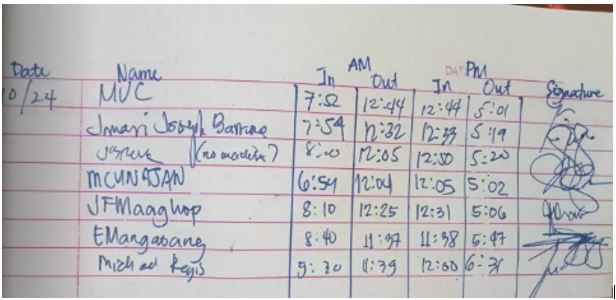 AM DATE PM
Date Name In Out In Out Signature
10/24 MVC 7:52 12:44 12:44 5:01
Joseph 7:54 12:32 12:33 5:19
8:00 12:05 12:50 5:20
MCUNAJAN 6:54 12:04 12:05 5:02
JFMaaghop 8:10 12:25 12:31 5:06
EMangabang 8:40 11:37 11:38 5:47
Michael Regis 9:30 11:39 12:00 6:31